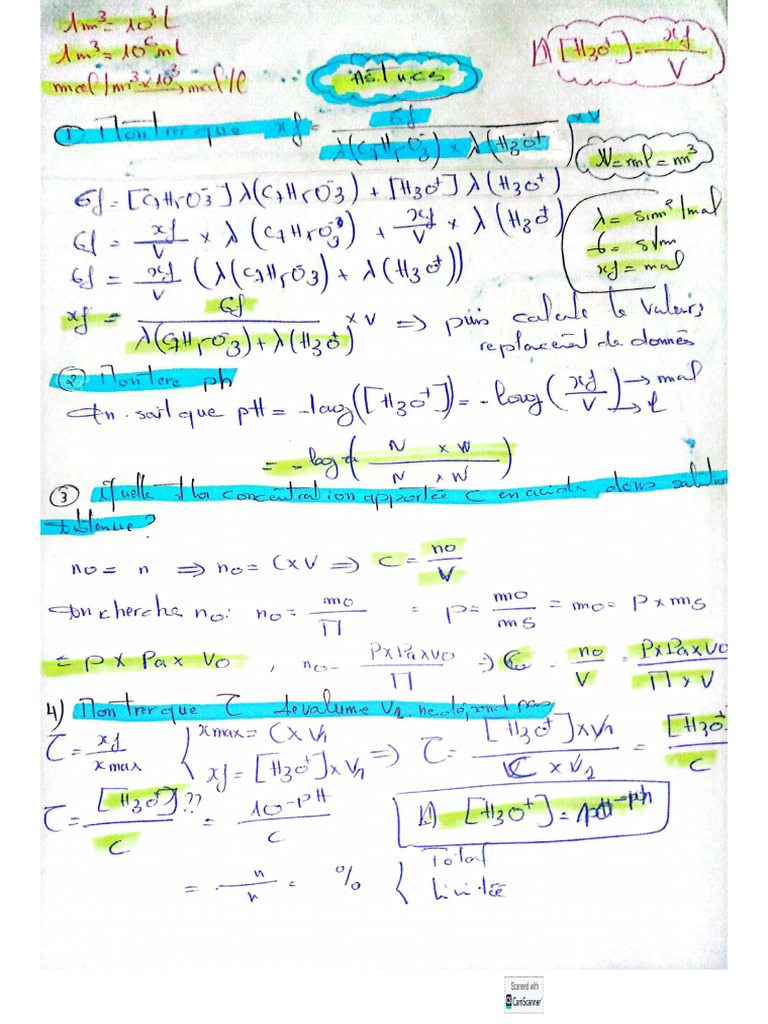 1m³ = 10³ l
1m³ = 10⁶ ml
mol/m³ × 10³ mol/l
Astuces
[H3O+] = xf / V
① Montrer que xf = σf / (λ(C7H5O3-) × λ(H3O+)) × V
V = ml = m³
σf = [C7H5O3-] λ(C7H5O3-) + [H3O+] λ(H3O+)
λ = sm²/mol
σf = xf/V × λ(C7H5O3-) + xf/V × λ(H3O+)
σ = s/m
xf = mol
σf = xf/V (λ(C7H5O3-) + λ(H3O+))
xf = σf / (λ(C7H5O3-) + λ(H3O+)) × V ⇒ puis calcule le valeurs
replacement de donnés
② Montere ph
On sait que pH = -log([H3O+]) = -log(xf/V) → mol → l
= -log( N × N / N × N )
③ Quelle est la concentration apportée C en acide dans solution
obtenue?
n0 = n ⇒ n0 = C×V ⇒ C = n0/V
On cherche n0: n0 = m0/M = P = m0/ms = m0 = P × ms
= P × ρa × V0 , n0 = P×ρa×V0/M ⇒ C = n0/V = P×ρa×V0/M×V
4) Montrer que τ de volume V1 ne dépend pas
τ = xf/xmax { xmax = C×V1
xf = [H3O+]×V1 ⇒ τ = [H3O+]×V1 / C×V1 = [H3O+]/C
τ = [H3O+]?? / C = 10-pH / C
[H3O+] = 10-ph
= n/n = % { Total
Limitée
Scanned with
CamScanner